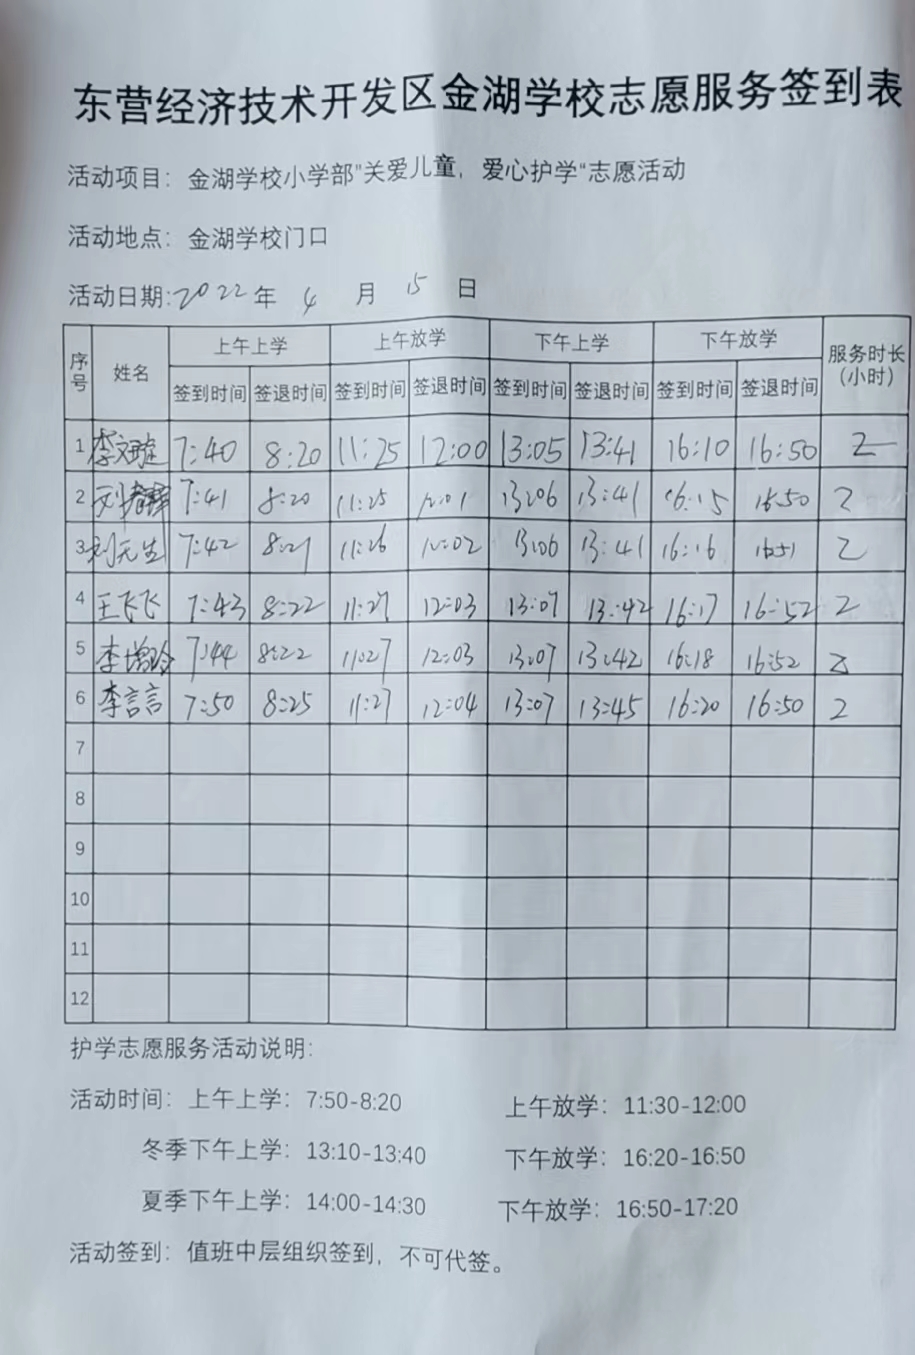 东营经济技术开发区金湖学校志愿服务签到表
活动项目：金湖学校小学部"关爱儿童，爱心护学"志愿活动
活动地点：金湖学校门口
活动日期:2022年 4 月 15 日
序号 姓名 上午上学 上午放学 下午上学 下午放学 服务时长（小时）
签到时间 签退时间 签到时间 签退时间 签到时间 签退时间 签到时间 签退时间
1 李文 7:40 8:20 11:25 12:00 13:05 13:41 16:10 16:50 2
2 刘 7:41 8:20 11:25 12:01 13:06 13:41 16:15 16:50 2
3 刘元生 7:42 8:21 11:26 12:02 13:06 13:41 16:16 16:51 2
4 王飞飞 7:43 8:22 11:27 12:03 13:07 13:42 16:17 16:52 2
5 李增玲 7:44 8:22 11:27 12:03 13:07 13:42 16:18 16:52 2
6 李言言 7:50 8:25 11:27 12:04 13:07 13:45 16:20 16:50 2
7
8
9
10
11
12
护学志愿服务活动说明:
活动时间：上午上学：7:50-8:20 上午放学：11:30-12:00
冬季下午上学：13:10-13:40 下午放学：16:20-16:50
夏季下午上学：14:00-14:30 下午放学：16:50-17:20
活动签到：值班中层组织签到，不可代签。